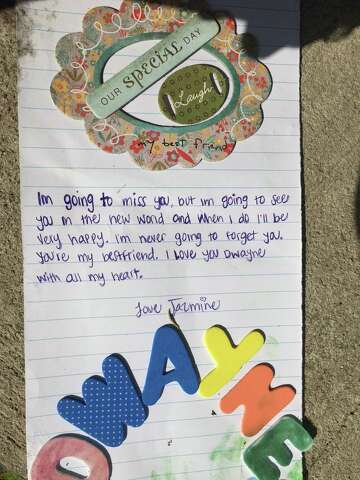 OUR SPECIAL DAY
Laugh
my best friend
Im going to miss you, but im going to see
you in the new world and when I do I'll be
very happy. Im never going to forget you.
You're my bestfriend. I love you Dwayne
with all my heart.
Love Jazmine
DWAYNE